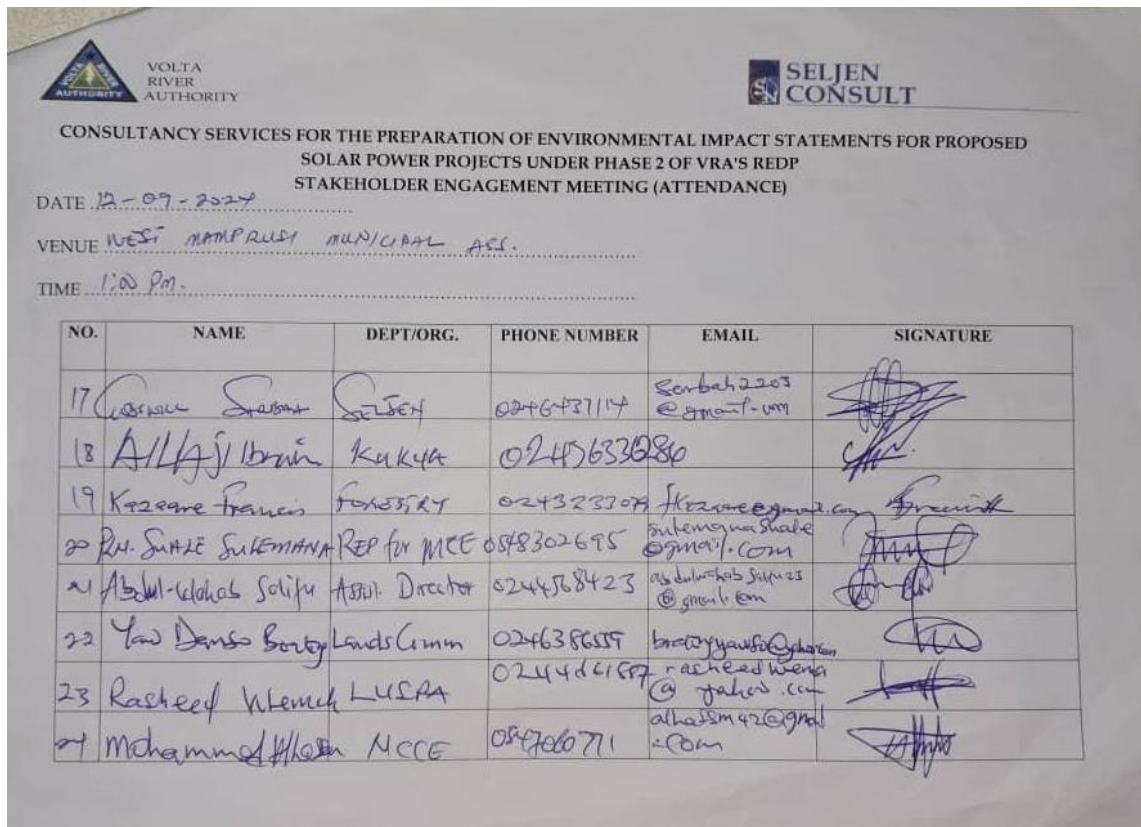 VOLTA
RIVER
AUTHORITY
VOLTA
RIVER
AUTHORITY
SELJEN
CONSULT
CONSULTANCY SERVICES FOR THE PREPARATION OF ENVIRONMENTAL IMPACT STATEMENTS FOR PROPOSED
SOLAR POWER PROJECTS UNDER PHASE 2 OF VRA'S REDP
STAKEHOLDER ENGAGEMENT MEETING (ATTENDANCE)
DATE 12-09-2024
VENUE WEST MAMPRUSI MUNICIPAL ASS.
TIME 1:00 Pm.
NO. NAME DEPT/ORG. PHONE NUMBER EMAIL SIGNATURE
17 SELJEN 0246437114 Sarbah2203
@gmail.com
18 ALHAJI Ibrain KUKUA
19 Kazaare Francis FORESTRY 0243233079
20 RN. SUALE SULEMANA REP for MCE 0548302695 sulemanashale
@gmail.com
21 Abdul-Wahab Salifu Assit. Director 0244568423
@gmail.com
22 Yaw Danso Lands Comm 0246386559
23 Rasheed LUSPA rasheedwena
@ yahoo.com
24 Mohammed Alhassan NCCE 0547060771 alhassm42@gmail
.com